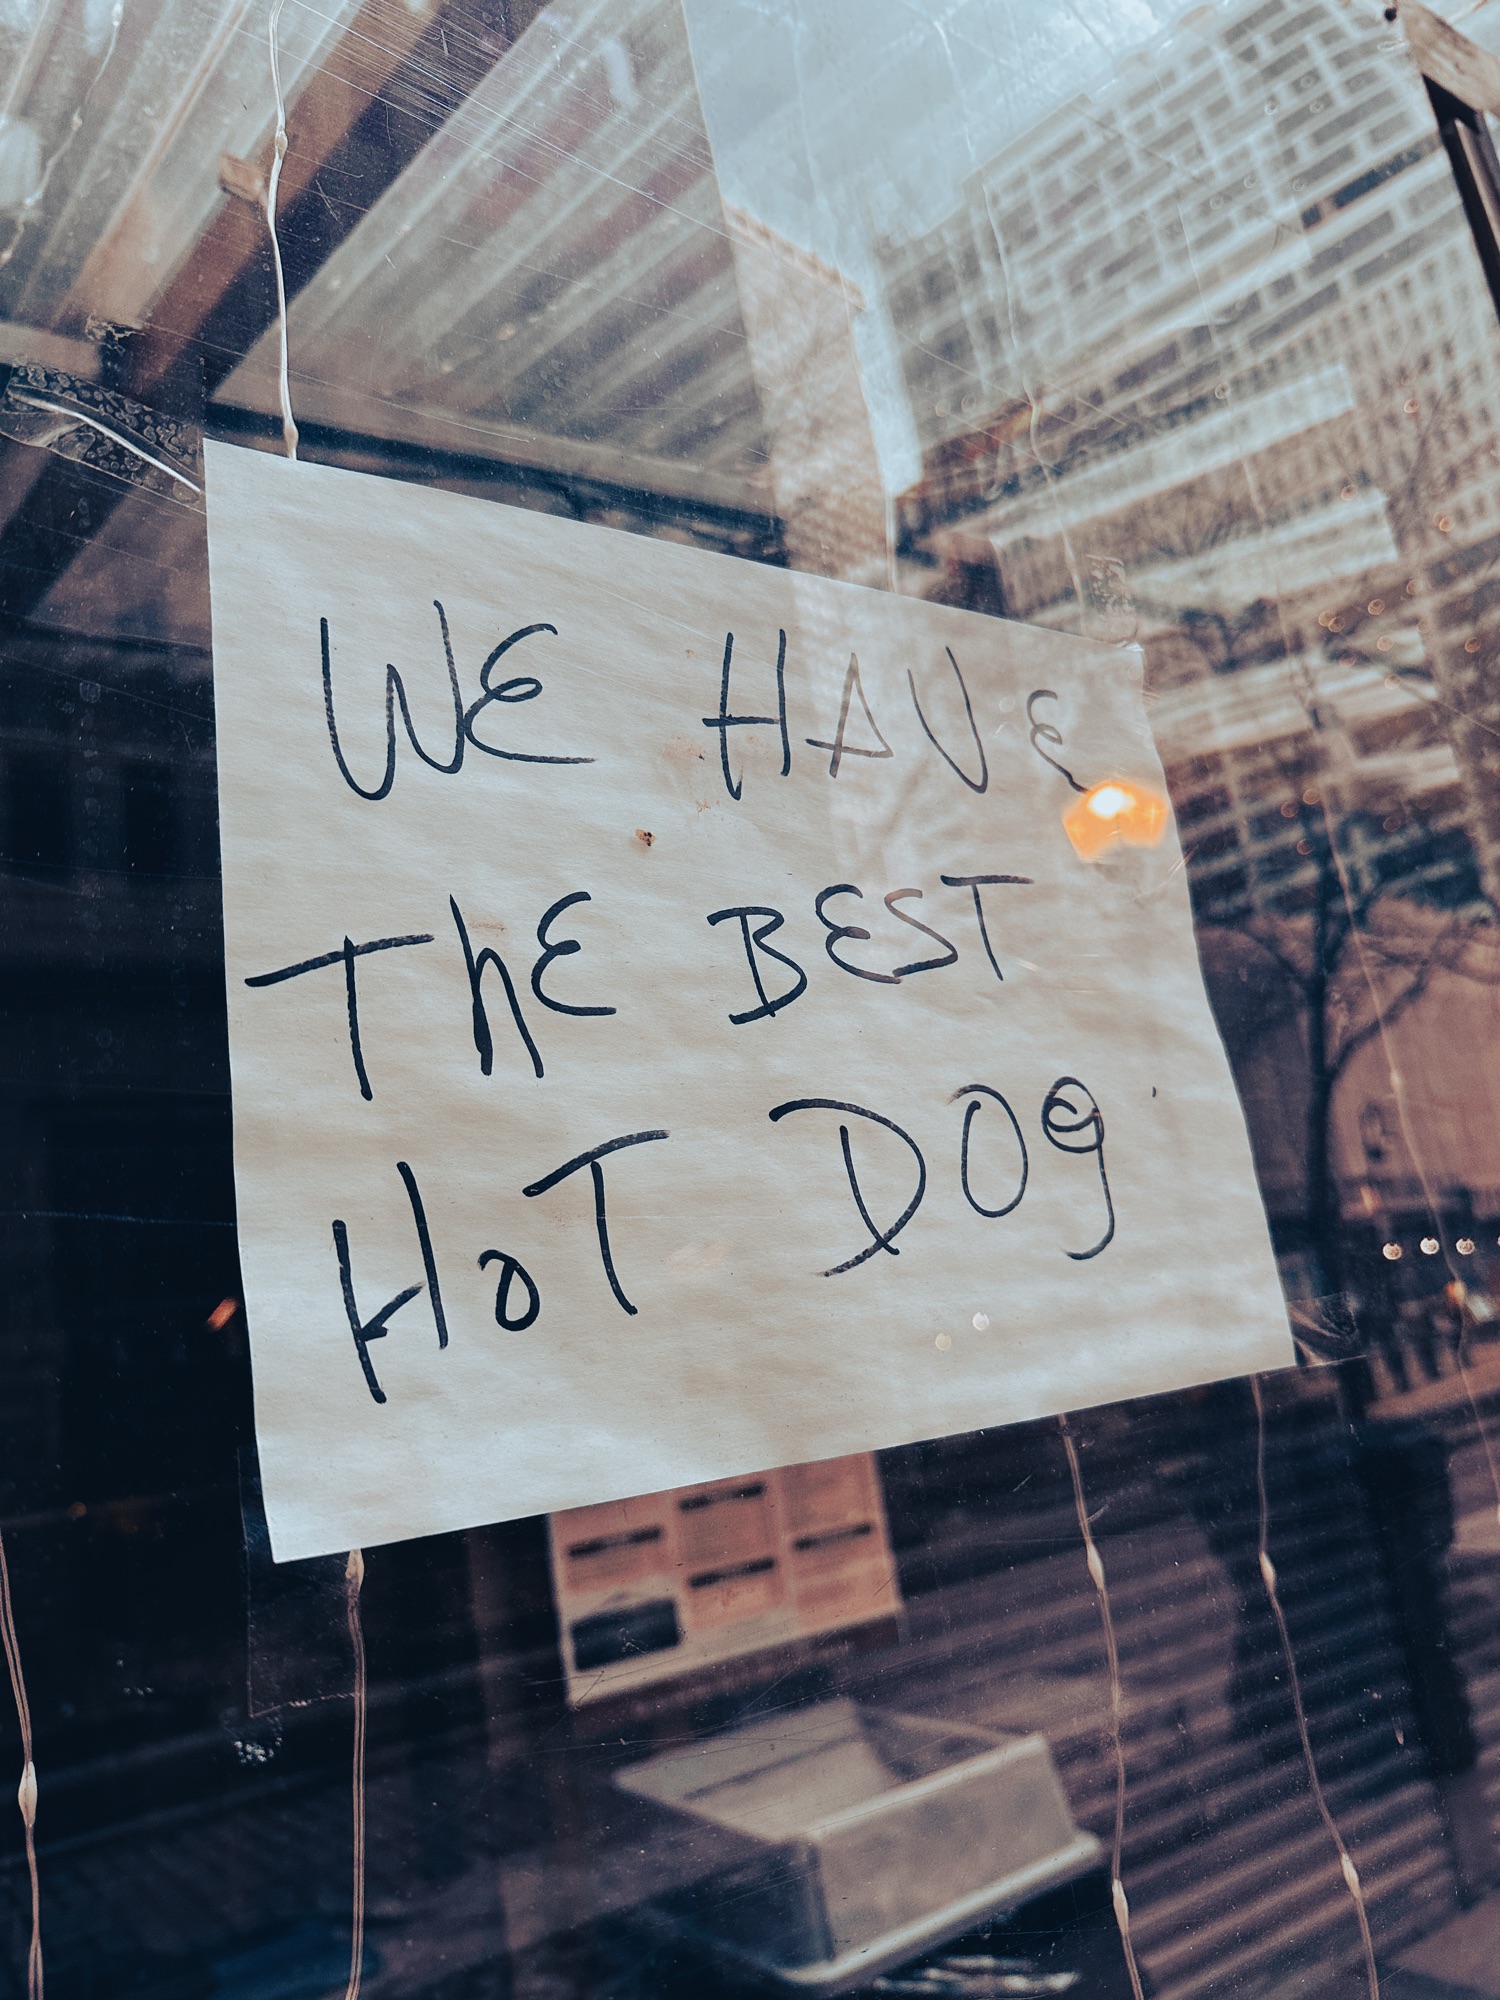 WE HAVE
ThE BEST
HoT DOg